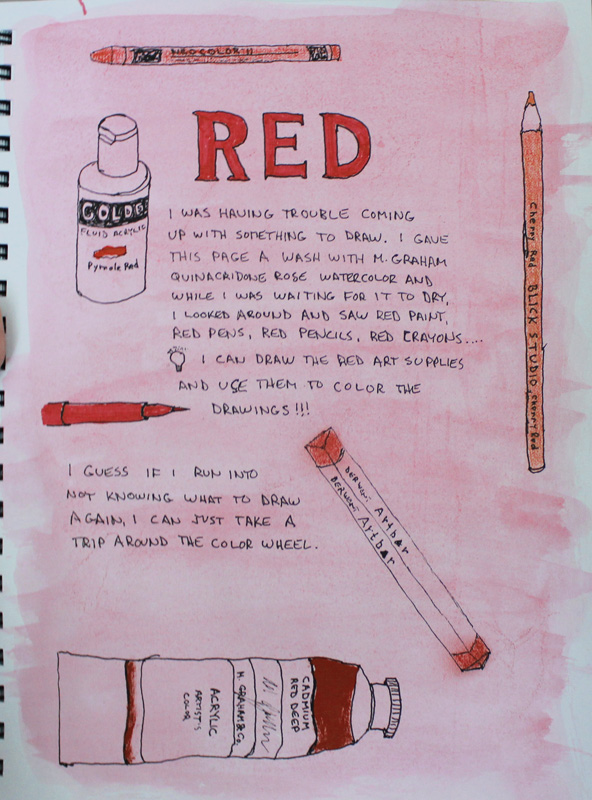 NEOCOLOR II
RED
GOLDE
FLUID ACRYLIC
Pyrrole Red
I WAS HAVING TROUBLE COMING
UP WITH SOMETHING TO DRAW. I GAVE
THIS PAGE A WASH WITH M. GRAHAM
QUINACRIDONE ROSE WATERCOLOR AND
WHILE I WAS WAITING FOR IT TO DRY,
I LOOKED AROUND AND SAW RED PAINT,
RED PENS, RED PENCILS, RED CRAYONS....
I CAN DRAW THE RED ART SUPPLIES
AND USE THEM TO COLOR THE
DRAWINGS!!!
Cherry Red BLICK STUDIO Cherry Red
I GUESS IF I RUN INTO
NOT KNOWING WHAT TO DRAW
AGAIN, I CAN JUST TAKE A
TRIP AROUND THE COLOR WHEEL.
DERWENT Artbar
DERWENT Artbar
CADMIUM
RED DEEP
M. GRAHAM & Co.
ACRYLIC
ARTIST'S
COLOR